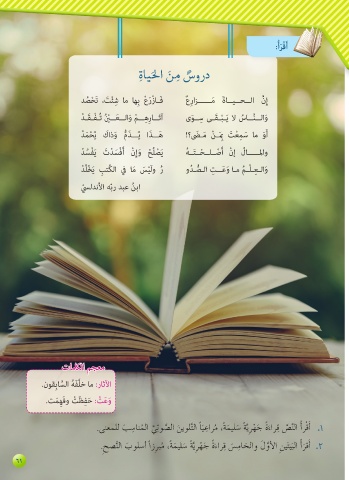 أَقْرَأُ:
دروسٌ مِنَ الحَياةِ
إنّ الـحيـاةَ مَـــــزارِعٌ فَـازْرَعْ بِها ما شِئْتَ، تَحْصُد
وَالنّـاسُ لا يَبْـقَى سِوَى آثـارِهِـمْ وَالـعَـيْنُ تُـفْـقَـدُ
أَوَ ما سَمِعْتَ بِمَنْ مَـضَى؟! هَــذا يُـذَمُّ وَذاكَ يُحْمَدُ
والمــالُ إنْ أَصْلَـحْـتَـهُ يَصْلُحْ وَإنْ أَفْسَدْتَ يَفْسُدْ
وَالعِلْـمُ مـا وَعَـتِ الصُّدُو رُ ولَيْسَ مَا فِي الكُتبِ يَخْلُدْ
ابنُ عبد ربّه الأندلسيّ
معجم الكلمات
الآثار: ما خَلَّفَهُ السَّابِقونَ.
وَعَتْ: حَفِظَتْ وفَهِمَت.
١. أَقْرَأُ النَّصَّ قِراءَةً جَهْرِيَّةً سَليمَةً، مُراعِيًا التَّلوينَ الصَّوْتِيَّ المُناسِبَ للمَعنى.
٢. أَقرَأُ البَيتَينِ الأوّلَ والخامِسَ قِراءَةً جَهْرِيَّةً سَليمَةً، مُبرِزًا أُسلوبَ النُّصحِ.
٦١